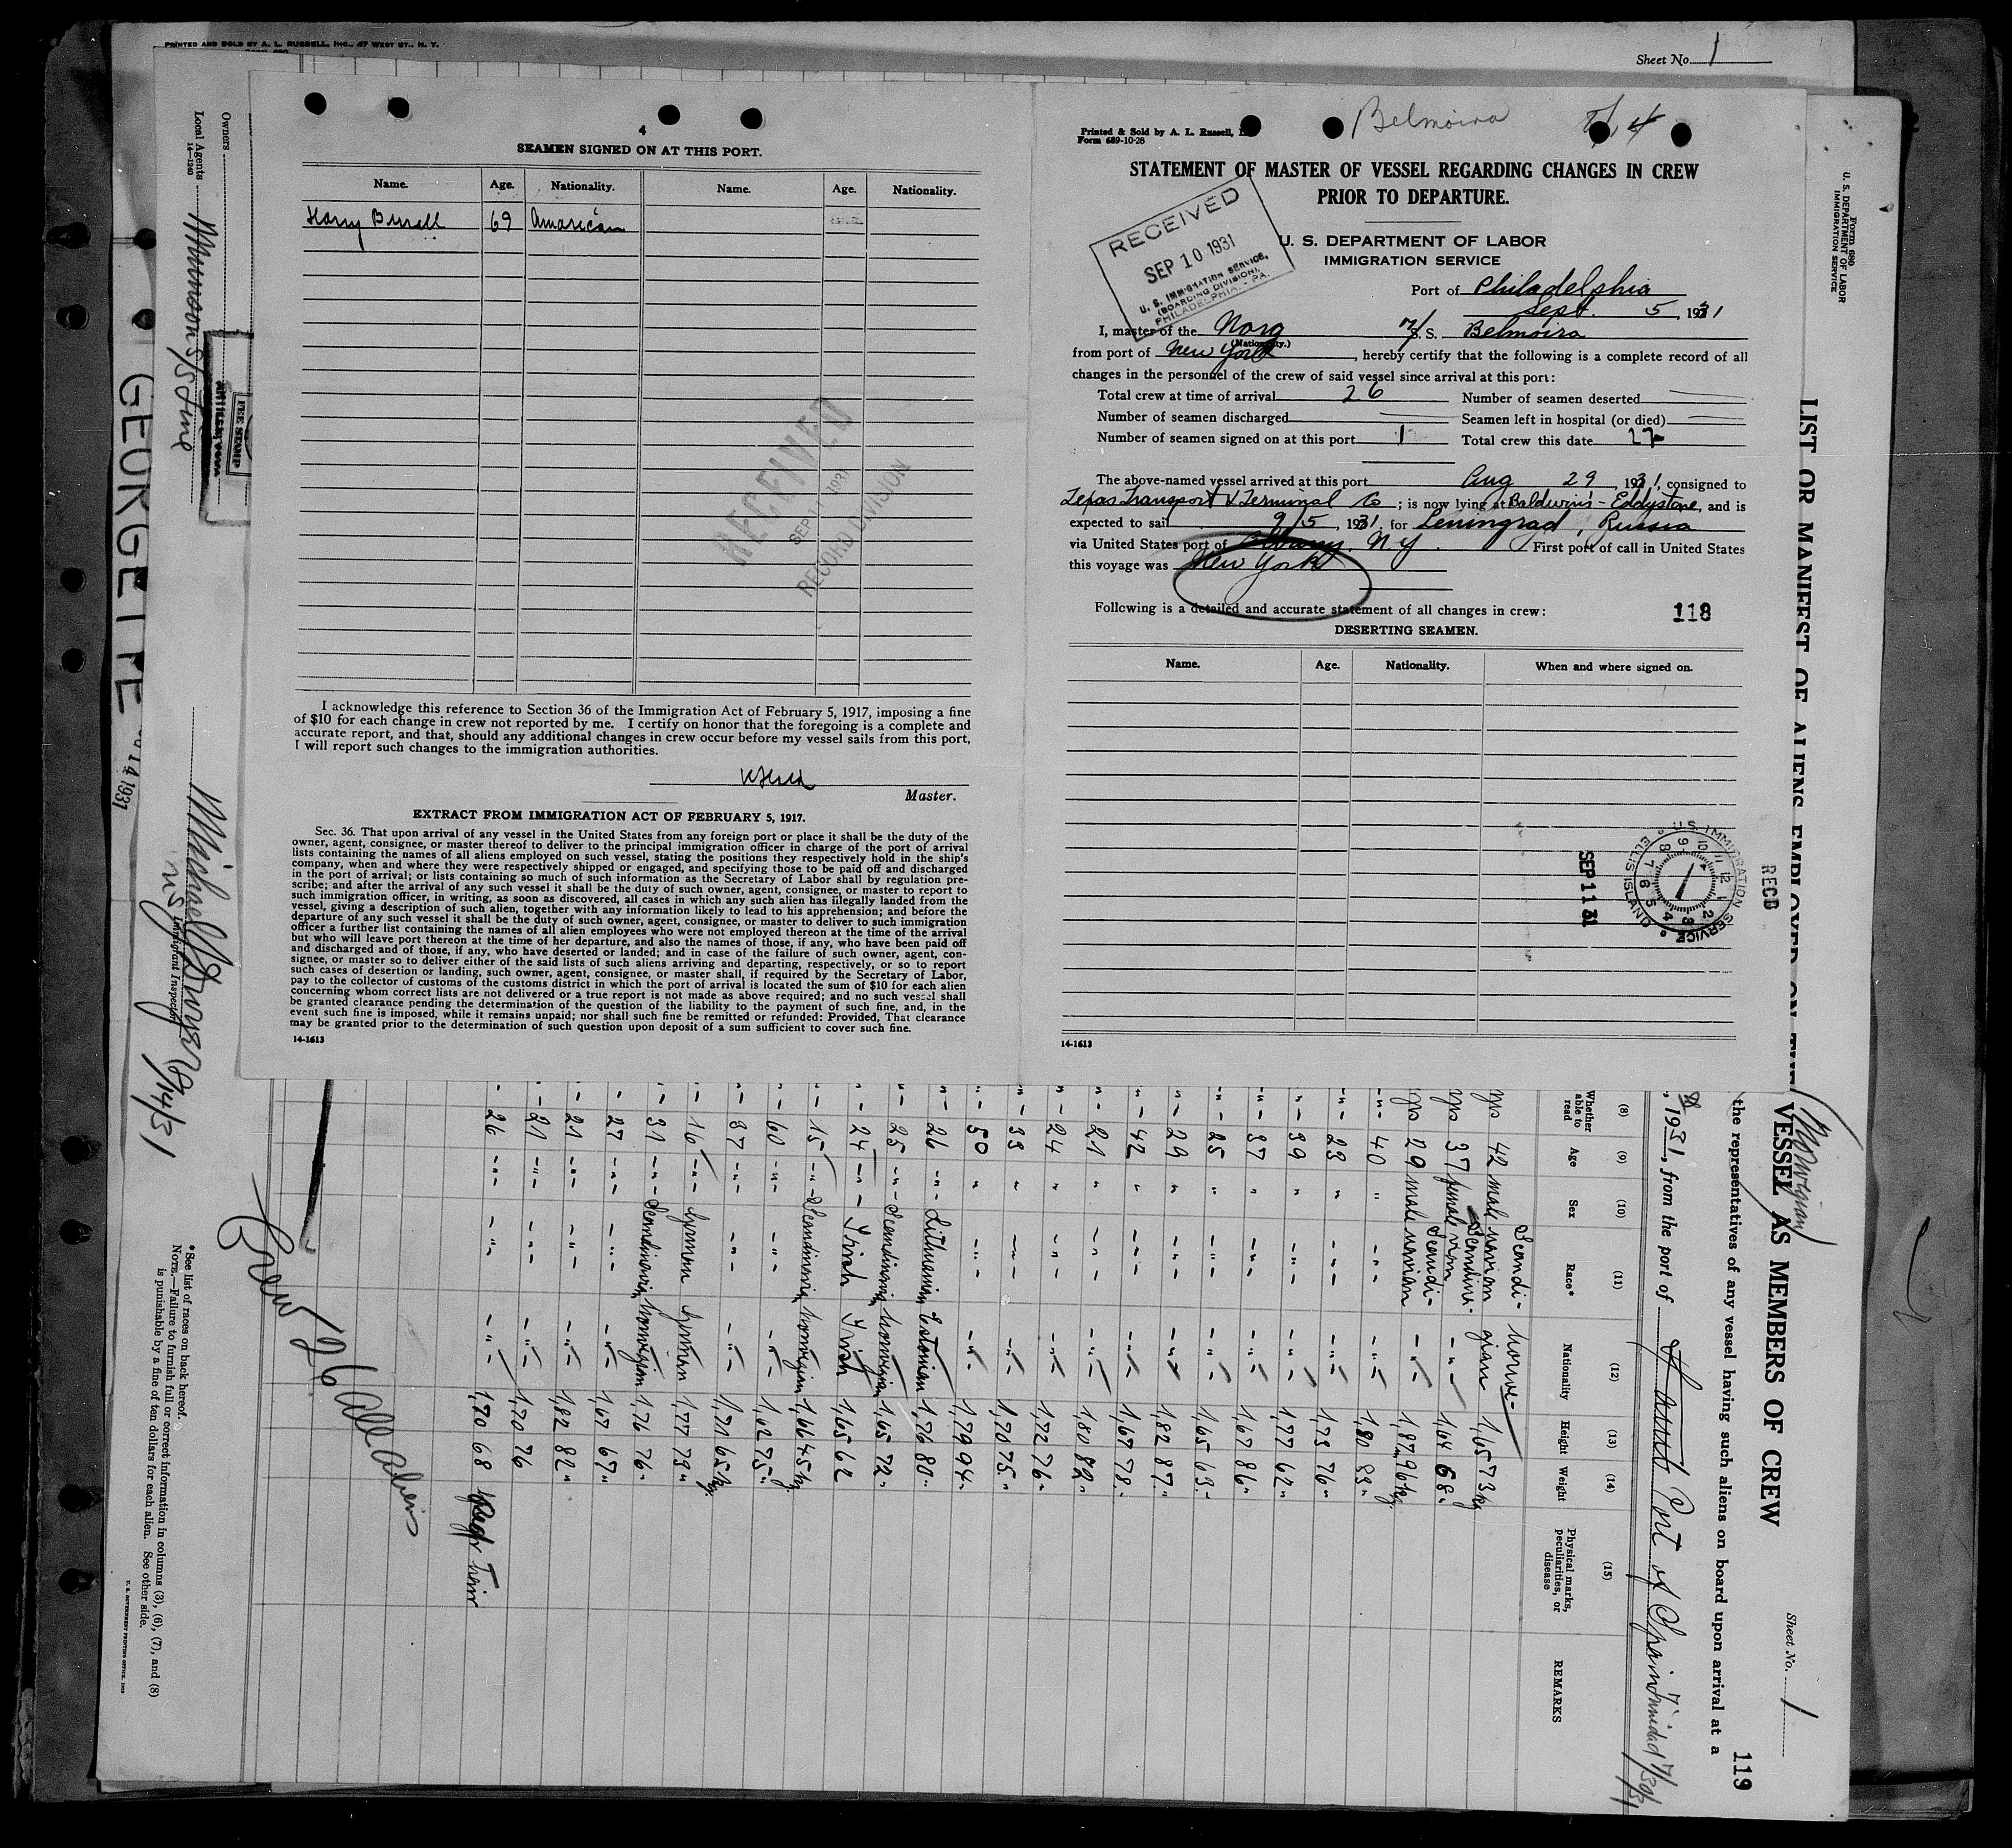 PRINTED AND SOLD BY A. L. RUSSELL, INC., 47 WEST ST., N. Y.
Sheet No. 1
4
SEAMEN SIGNED ON AT THIS PORT.
Name. Age. Nationality. Name. Age. Nationality.
Harry Burrell 69 American
RECEIVED
SEP 11 1931
RECORD DIVISION
I acknowledge this reference to Section 36 of the Immigration Act of February 5, 1917, imposing a fine
of $10 for each change in crew not reported by me. I certify on honor that the foregoing is a complete and
accurate report, and that, should any additional changes in crew occur before my vessel sails from this port,
I will report such changes to the immigration authorities.
Master.
EXTRACT FROM IMMIGRATION ACT OF FEBRUARY 5, 1917.
Sec. 36. That upon arrival of any vessel in the United States from any foreign port or place it shall be the duty of the
owner, agent, consignee, or master thereof to deliver to the principal immigration officer in charge of the port of arrival
lists containing the names of all aliens employed on such vessel, stating the positions they respectively hold in the ship's
company, when and where they were respectively shipped or engaged, and specifying those to be paid off and discharged
in the port of arrival; or lists containing so much of such information as the Secretary of Labor shall by regulation pre-
scribe; and after the arrival of any such vessel it shall be the duty of such owner, agent, consignee, or master to report to
such immigration officer, in writing, as soon as discovered, all cases in which any such alien has illegally landed from the
vessel, giving a description of such alien, together with any information likely to lead to his apprehension; and before the
departure of any such vessel it shall be the duty of such owner, agent, consignee, or master to deliver to such immigration
officer a further list containing the names of all alien employees who were not employed thereon at the time of the arrival
but who will leave port thereon at the time of her departure, and also the names of those, if any, who have been paid off
and discharged and of those, if any, who have deserted or landed; and in case of the failure of such owner, agent, con-
signee, or master so to deliver either of the said lists of such aliens arriving and departing, respectively, or so to report
such cases of desertion or landing, such owner, agent, consignee, or master shall, if required by the Secretary of Labor,
pay to the collector of customs of the customs district in which the port of arrival is located the sum of $10 for each alien
concerning whom correct lists are not delivered or a true report is not made as above required; and no such vessel shall
be granted clearance pending the determination of the question of the liability to the payment of such fine, and, in the
event such fine is imposed, while it remains unpaid; nor shall such fine be remitted or refunded: Provided, That clearance
may be granted prior to the determination of such question upon deposit of a sum sufficient to cover such fine.
14-1613
Belmoira
Printed & Sold by A. L. Russell,
Form 689-10-28
STATEMENT OF MASTER OF VESSEL REGARDING CHANGES IN CREW
PRIOR TO DEPARTURE.
RECEIVED
SEP 10 1931
U. S. IMMIGRATION SERVICE,
(BOARDING DIVISION),
PHILADELPHIA, - PA.
U. S. DEPARTMENT OF LABOR
IMMIGRATION SERVICE
Port of Philadelphia
Sept. 5, 1931
I, master of the Norg S. S. Belmoira
(Nationality.)
from port of New York, hereby certify that the following is a complete record of all
changes in the personnel of the crew of said vessel since arrival at this port:
Total crew at time of arrival 26 Number of seamen deserted
Number of seamen discharged Seamen left in hospital (or died)
Number of seamen signed on at this port 1 Total crew this date 27
The above-named vessel arrived at this port Aug 29, 1931, consigned to
Texas Transport & Terminal Co; is now lying at Baldwin's - Eddystone, and is
expected to sail 9/5, 1931, for Leningrad, Russia
via United States port of Albany N.Y. First port of call in United States
this voyage was New York
Following is a detailed and accurate statement of all changes in crew:
118
DESERTING SEAMEN.
Name. Age. Nationality. When and where signed on.
SEP 11 31
U.S. IMMIGRATION SERVICE
ELLIS ISLAND
RECD
14-1613
Form 680
U. S. DEPARTMENT OF LABOR
IMMIGRATION SERVICE
LIST OR MANIFEST OF ALIENS EMPLOYED ON THE
Norwegian
VESSEL AS MEMBERS OF CREW
Sheet No. 1
119
the representatives of any vessel having such aliens on board upon arrival at a
, 1931, from the port of Port of Spain Trinidad 7/30/31
(8) (9) (10) (11) (12) (13) (14) (15)
Whether able to read Age Sex Race* Nationality Height Weight Physical marks, peculiarities, or disease REMARKS
yes 42 male Scandi-navian Norwe-gian 1,65 73 kg
yes 37 female Scandina-vian -"- 1,64 68 "
yes 29 male Scandi-navian -"- 1,87 96 kg.
-"- 40 " -"- -"- 1,80 83 "
-"- 23 " -"- -"- 1,73 76 "
-"- 39 " -"- -"- 1,77 62 "
-"- 37 " -"- -"- 1,67 86 "
-"- 25 " -"- -"- 1,65 63 "
-"- 29 " -"- -"- 1,82 87 "
-"- 42 " -"- -"- 1,67 78 "
-"- 21 " -"- -"- 1,80 82 "
-"- 24 " -"- -"- 1,72 76 "
-"- 33 " -"- -"- 1,70 75 "
-"- 50 " -"- -"- 1,79 94 "
-"- 26 -"- Lithuanian Estonian 1,76 80 "
-"- 25 -"- Scandinavian Norwegian 1,65 72 "
-"- 24 -"- Irish Irish 1,65 62
-"- 15 -"- Scandinavian Norwegian 1,66 45 kg
-"- 60 -"- -"- -"- 1,62 75 "
-"- 37 -"- -"- -"- 1,71 65 kg
-"- 16 -"- German German 1,77 73 "
-"- 31 -"- Scandinavian Norwegian 1,76 76 "
-"- 27 -"- -"- -"- 1,67 67 "
-"- 21 -"- -"- -"- 1,82 82 "
-"- 21 -"- -"- -"- 1,70 76
-"- 26 -"- -"- -"- 1,70 68
Crew 26 all aliens
*See list of races on back hereof.
NOTE.—Failure to furnish full or correct information in columns (3), (6), (7), and (8)
is punishable by a fine of ten dollars for each alien. See other side.
Owners
Local Agents Munson S/S Line
14-1240
FEE STAMP
Immigrant Inspector
8/14/31
GEORGETTE
14 1931